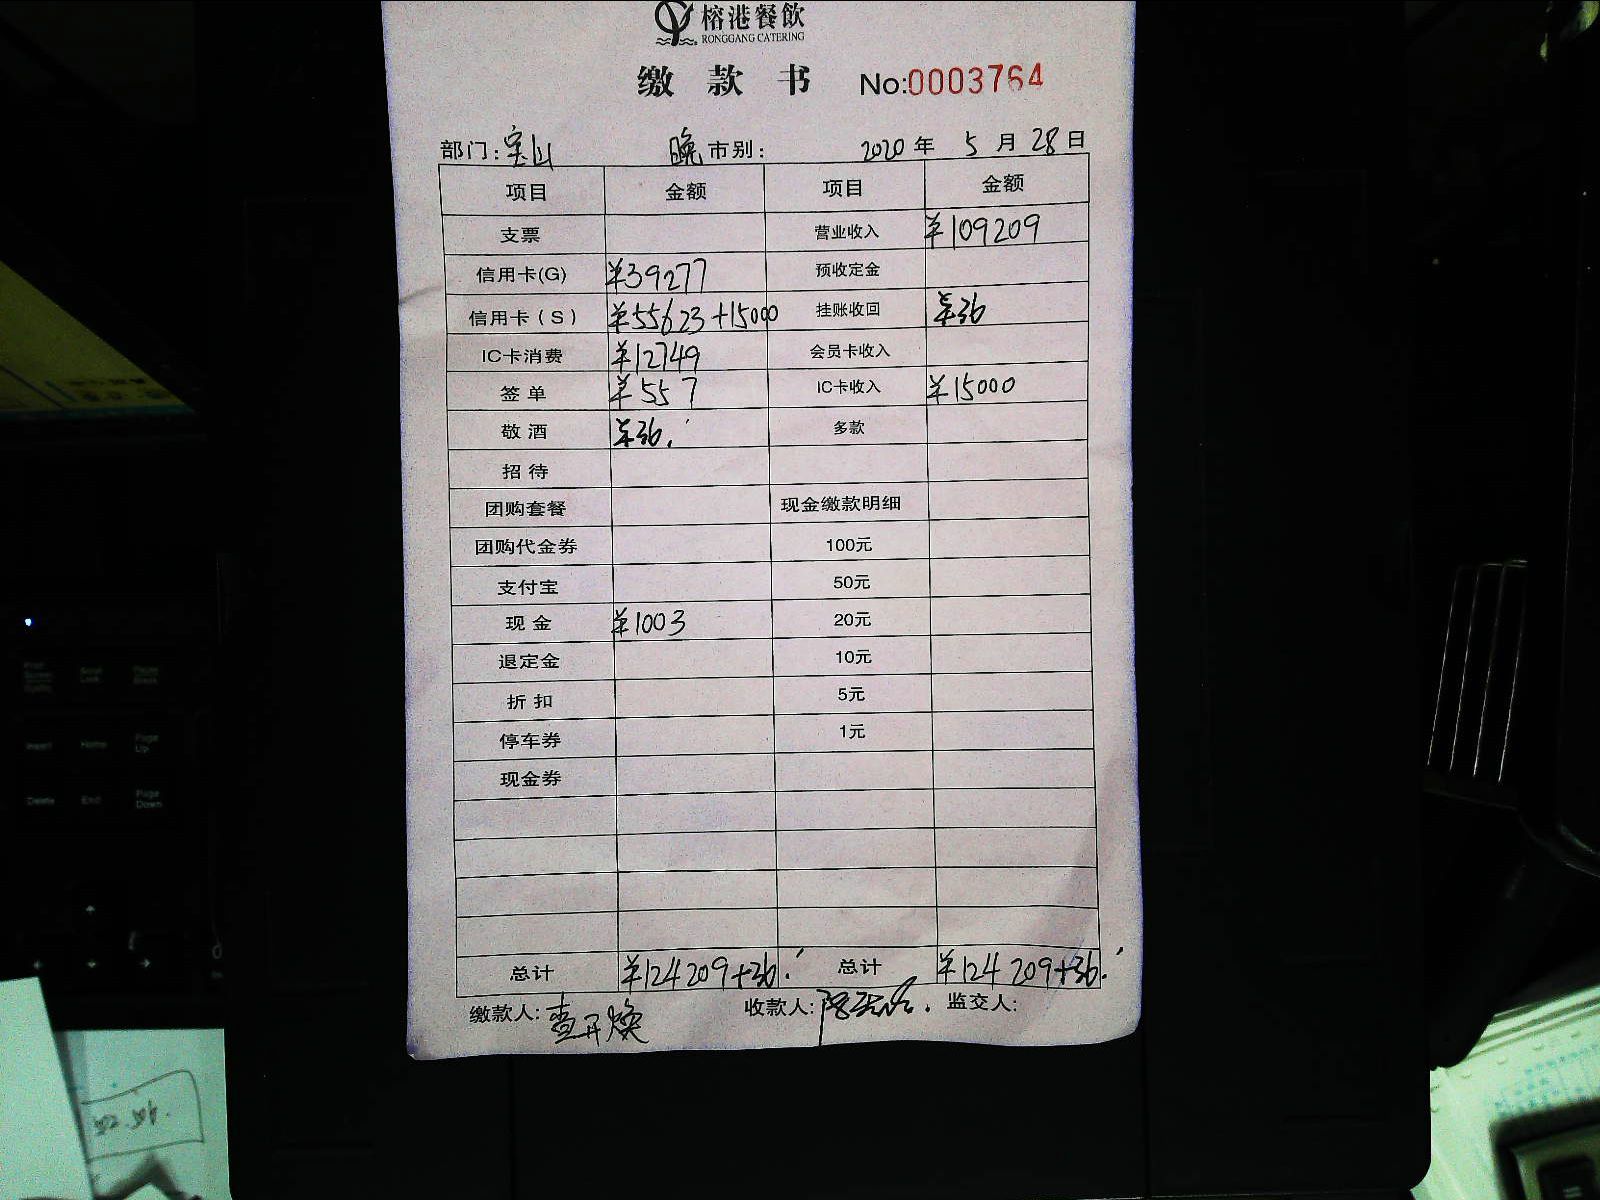 榕港餐飲
RONGGANG CATERING
缴 款 书 No:0003764
部门: 宝山 晚市别: 2020年 5月28日
项目 金额 项目 金额
支票 营业收入 ¥109209
信用卡(G) ¥39277 预收定金
信用卡(S) ¥55623+15000 挂账收回 ¥36
IC卡消费 ¥12749 会员卡收入
签单 ¥557 IC卡收入 ¥15000
敬酒 ¥36. 多款
招待
团购套餐 现金缴款明细
团购代金券 100元
支付宝 50元
现金 ¥1003 20元
退定金 10元
折扣 5元
停车券 1元
现金券
总计 ¥124209+36. 总计 ¥124209+36.
缴款人: 收款人: 监交人:
Insert Home Page Up
Delete End Page Down